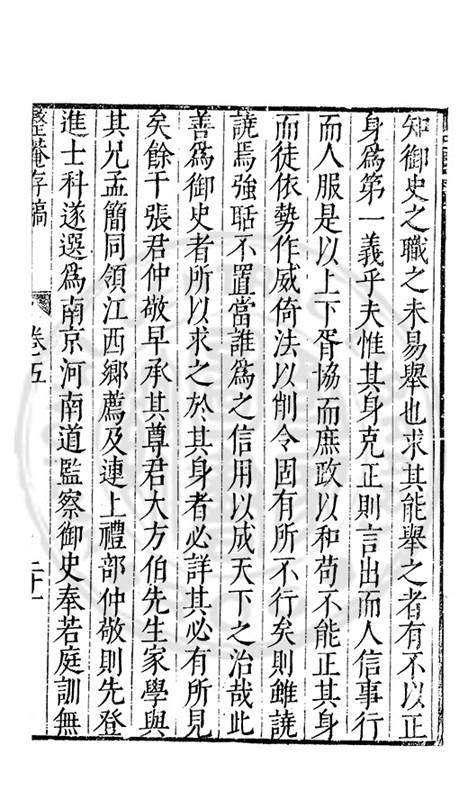 知御史之職之未易舉也求其能舉之者有不以正
身爲第一義乎夫惟其身克正則言出而人信事行
而人服是以上下胥協而庶政以和苟不能正其身
而徒依勢作威倚法以削令固有所不行矣則雖譊
譊焉強聒不置當誰爲之信用以成天下之治哉此
善爲御史者所以求之於其身者必詳其必有所見
矣餘干張君仲敬早承其尊君大方伯先生家學與
其兄孟簡同領江西鄉薦及連上禮部仲敬則先登
進士科遂選爲南京河南道監察御史奉若庭訓無
整菴存稿
卷五
二十一